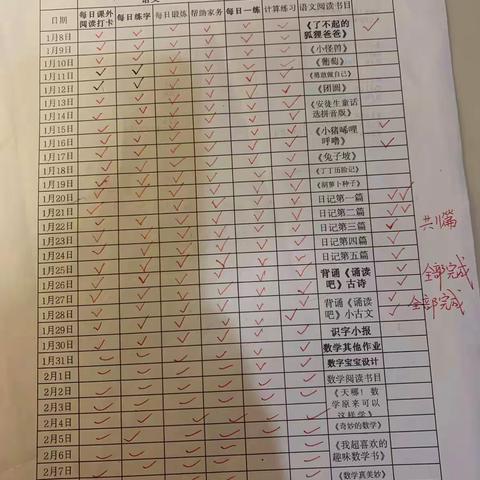 语文
日期 每日课外阅读打卡 每日练字 每日锻炼 帮助家务 每日一练 计算练习 语文阅读书目
1月8日 《了不起的
1月9日 狐狸爸爸》
《小怪兽》
1月10日 《葡萄》
1月11日 《勇敢做自己》
1月12日 《团圆》
1月13日 《安徒生童话
1月14日 选拼音版》
1月15日 《小猪唏哩
1月16日 呼噜》
1月17日 《兔子坡》
1月18日 《丁丁历险记》
1月19日 《胡萝卜种子》
1月20日 日记第一篇
1月21日 日记第二篇
1月22日 日记第三篇 共11篇
1月23日 日记第四篇
1月24日 日记第五篇
1月25日 背诵《诵读 全部完成
1月26日 吧》古诗
1月27日 背诵《诵读 全部完成
1月28日 吧》小古文
1月29日 识字小报
1月30日 数学其他作业
1月31日 数字宝宝设计
2月1日 数学阅读书目
2月2日 《天哪！数
2月3日 学原来可以
这样学》
2月4日 《奇妙的数学》
2月5日 《我超喜欢的
2月6日 趣味数学书》
2月7日 《数学真美妙》